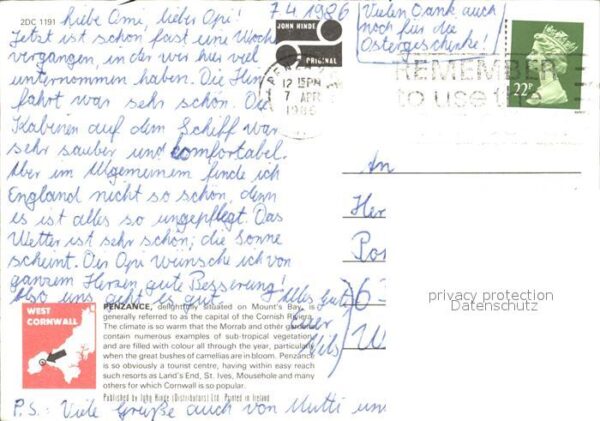 2DC 1191
7.4.1986
Liebe Omi, lieber Opi!
Jetzt ist schon fast eine Woche
vergangen, in der wir hier viel
unternommen haben. Die Hin-
fahrt war sehr schön. Die
Kabinen auf dem Schiff war
sehr sauber und comfortabel.
Aber im Allgemeinem finde ich
England nicht so schön, denn
es ist alles so ungepflegt. Das
Wetter ist sehr schön; die Sonne
scheint. Der Opi wünsche ich von
ganzem Herzen gute Besserung!
Also uns geht es gut.
Alles Gute
Euer
Nils
JOHN HINDE
ORIGINAL
Vielen Dank auch
noch für die
Ostergeschenke!
PENZANCE
12 15PM
7 APR
1986
REMEMBER
to use the
22P
An
Her
Pon
63
W
privacy protection
Datenschutz
WEST
CORNWALL
PENZANCE, delightfully situated on Mount's Bay, is
generally referred to as the capital of the Cornish Riviera.
The climate is so warm that the Morrab and other gardens
contain numerous examples of sub-tropical vegetation
and are filled with colour all through the year, particularly
when the great bushes of camellias are in bloom. Penzance
is so obviously a tourist centre, having within easy reach
such resorts as Land's End, St. Ives, Mousehole and many
others for which Cornwall is so popular.
Published by John Hinde (Distributors) Ltd. Printed in Ireland
P.S.: Viele Grüße auch von Mutti un